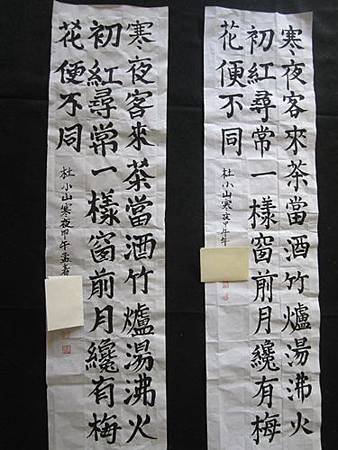 寒夜客來茶當酒竹爐湯沸火
初紅尋常一樣窗前月纔有梅
花便不同
杜小山寒夜甲午
寒夜客來茶當酒竹爐湯沸火
初紅尋常一樣窗前月纔有梅
花便不同
杜小山寒夜甲午孟